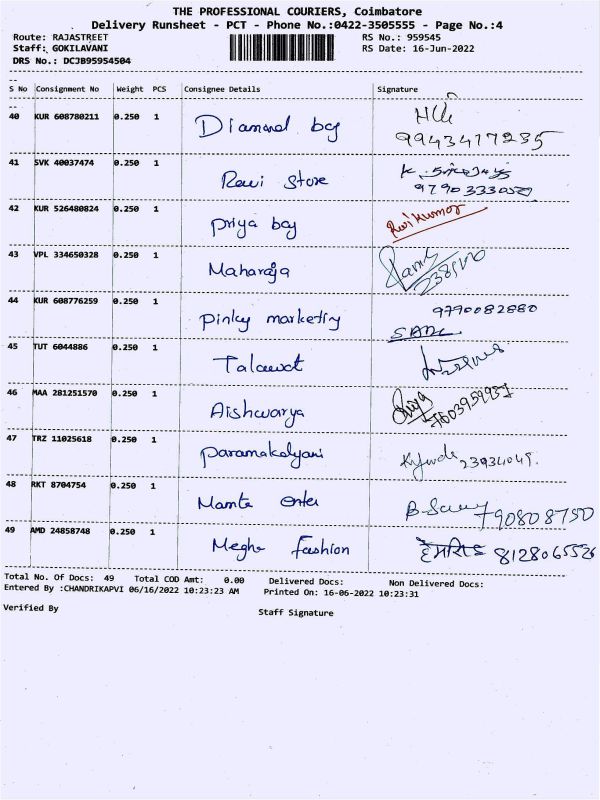 THE PROFESSIONAL COURIERS, Coimbatore
Delivery Runsheet - PCT - Phone No.:0422-3505555 - Page No.:4
Route: RAJASTREET RS No.: 959545
Staff: GOKILAVANI RS Date: 16-Jun-2022
DRS No.: DCJB95954504
S No Consignment No Weight PCS Consignee Details Signature
40 KUR 608780211 0.250 1 Diamond bag
9943417235
41 SVK 40037474 0.250 1 Ravi Store
42 KUR 526480824 0.250 1 Priya bag Ravikumar
43 VPL 334650328 0.250 1 Maharaja
44 KUR 608776259 0.250 1 Pinky marketing 9790082880
45 TUT 6044886 0.250 1 Talawat
46 MAA 281251570 0.250 1 Aishwarya
47 TRZ 11025618 0.250 1 Paramakalyani
48 RKT 8704754 0.250 1 Mamta enter
49 AMD 24858748 0.250 1 Megha fashion 8128065526
Total No. Of Docs: 49 Total COD Amt: 0.00 Delivered Docs: Non Delivered Docs:
Entered By :CHANDRIKAPVI 06/16/2022 10:23:23 AM Printed On: 16-06-2022 10:23:31
Verified By Staff Signature